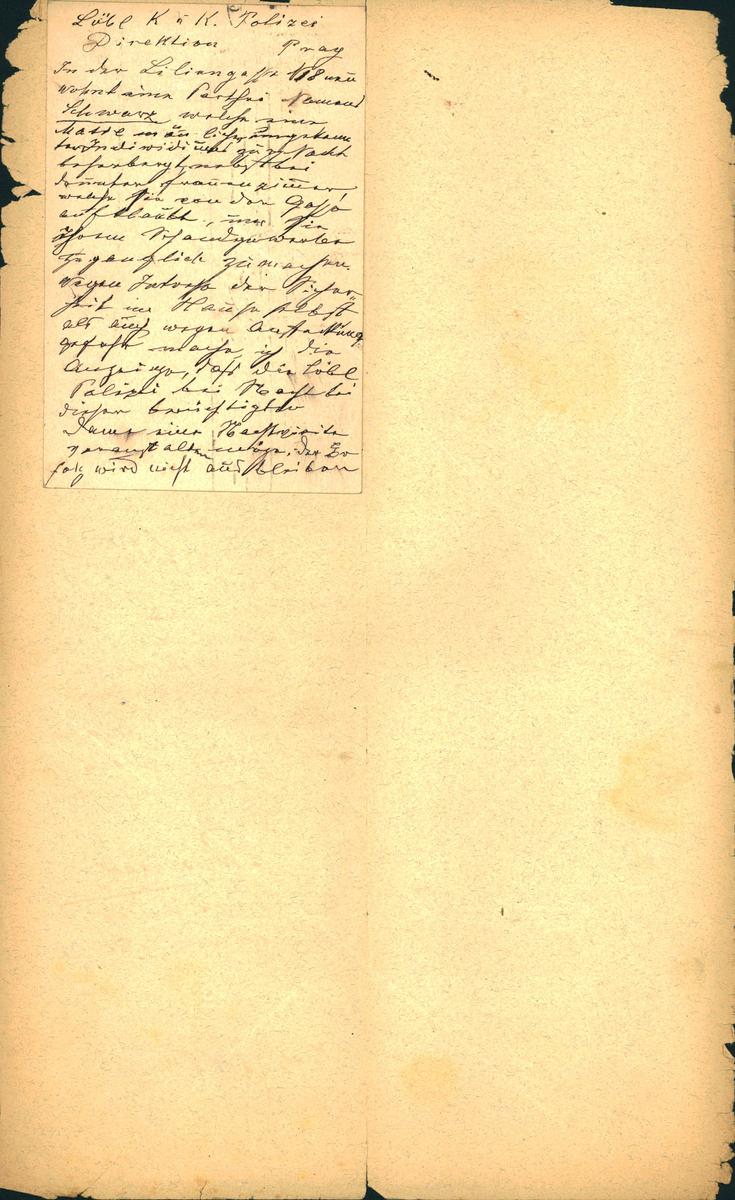 Löbl K u K. Polizei
Direktion Prag
In der Liliengasse 18 neu
wohnt eine Parthei Namens
Schwarz, welche eine
Masse männlich
Individuen zur Nacht
beherbergt, nebstbei
darunter Frauenzimmer
welche sie von der Gasse
aufklaubt, um sie
ihrem Schandgewerbe
zugänglich zu machen.
Wegen Intresse der Sicher
heit im Hause selbst
als auch wegen Ansteckungs
gefahr mache ich die
Anzeige, daß die Löbl
Polizei bei Nacht bei
dieser berüchtigten
Dame eine Nachtvisite
veranstalten möge, der Er
folg wird nicht ausbleiben